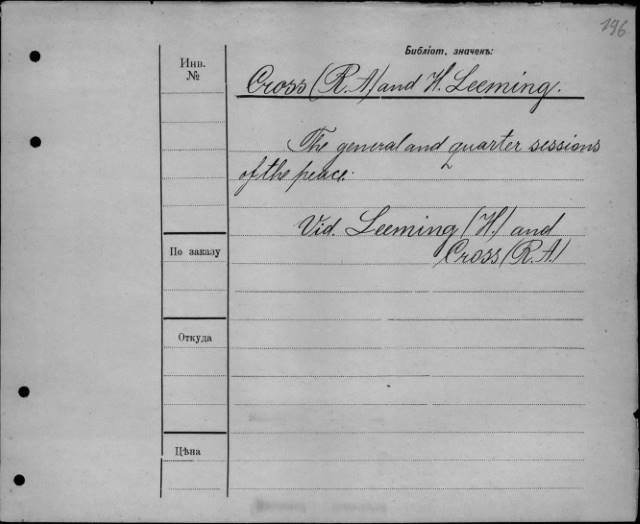 196
Библіот. значекъ:
Инв.
№
Cross (R. A.) and H. Leeming.
The general and quarter sessions
of the peace.
Vid. Leeming (H.) and
Cross (R. A.)
По заказу
Откуда
Цѣна